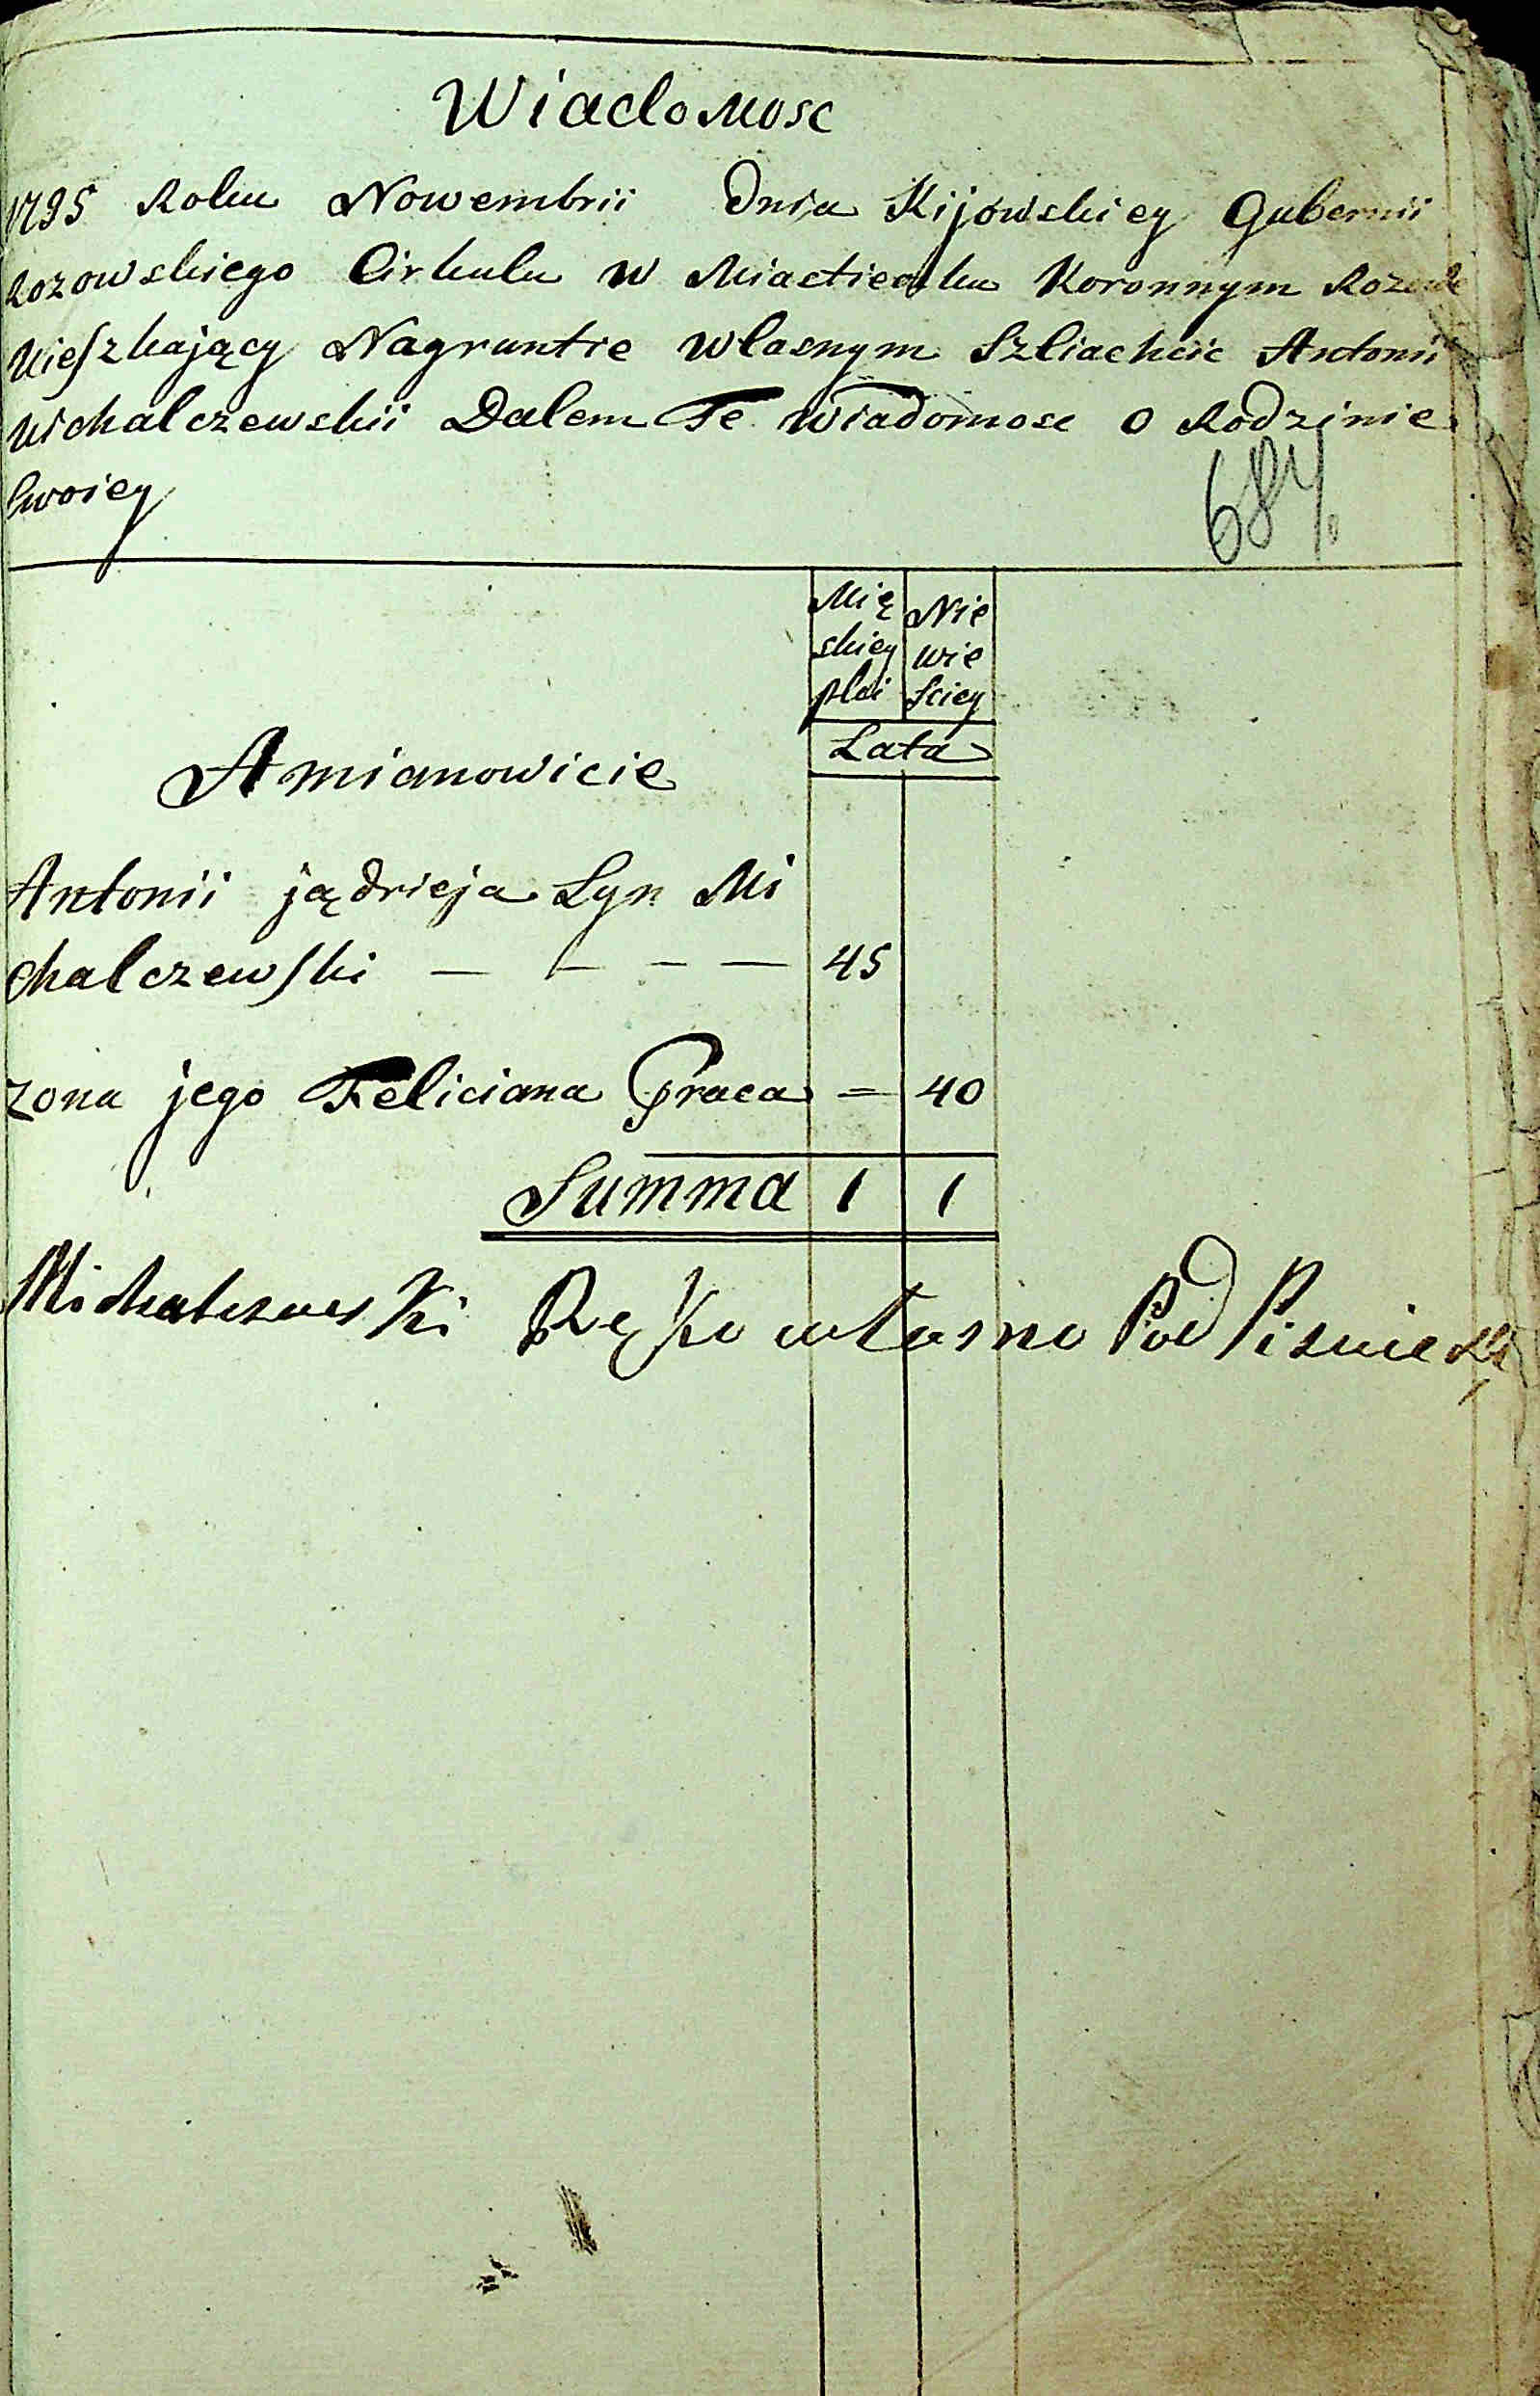 Wiadomosc
1795 Roku Nowembrii Dnia Kijowskiey Gubernii
Rozowskiego Cirkulu w Miastieczku Koronnym
Mieszkający Nagruntie własnym Szliachcic Antonii
Michalczewskii Dalem Te wiadomosc o Rodzinie
Swoiey
684
Mię Nie
skiey wie
plci sciey
Lata
Amianowicie
Antonii jądrieja Syn Mi
chalczewski — — — — 45
zona jego Feliciana = 40
Summa 1 1
Michalczewski Ręko własno Pod Pisuie się